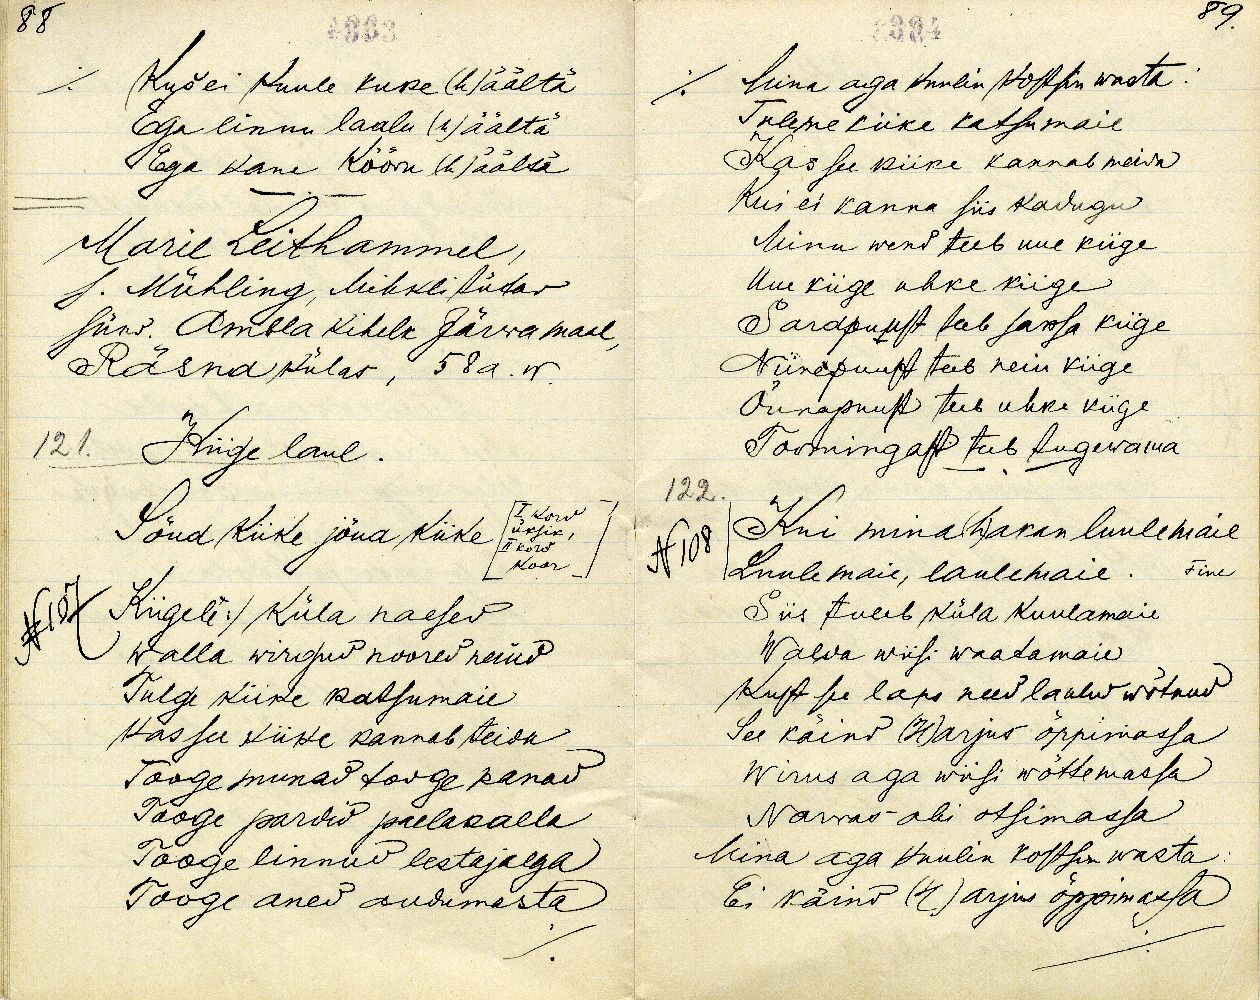 88
Kus ei kuule kuke (h)äältä
Ega linnu laulu (h)äältä
Ega kane kõõru (h)äältä
Marie Leithammel,
s. Mühling, Mihkli tütar
sünd. Ambla kihelk Järwamaal,
Räsna külas, 58 a. w.
121. Kiige laul.
Sõud kiike jõua kiike [I kord
üksik,
II kord
koor]
№ 107
Kiigele :/ Küla naesed
Walla wirgud noored neiud
Tulge kiike katsumaie
Kas see kiike kannab teida
Tooge munad tooge kanad
Tooge pardid paelakaella
Tooge linnud lestajalga
Tooge aned audumasta
./.
89.
4334
./. Mina aga kuulin kostsin wasta:
Tuleme kiike katsumaie
Kas see kiike kannab meida
Kui ei kanna siis kadugu
Minu wend teeb uue kiige
Uue kiige uhke kiige
Sarapuust teeb sarssa kiige
Niinepuust teeb neiu kiige
Õunapuust teeb uhke kiige
Toomingast teeb tugewama
122.
№ 108
Kui mina (h)akan luulemaie
Luulemaie, laulemaie.
Siis tuleb küla kuulamaie
Walda wiisi waatamaie
Kust see laps need laulud wõtnud
See käind (H)arjus õppimassa
Wirus aga wiisi wõttemassa
Narwas abi otsimassa
Mina aga kuulin kostsin wasta:
Ei käind (H)arjus õppimassa
./.